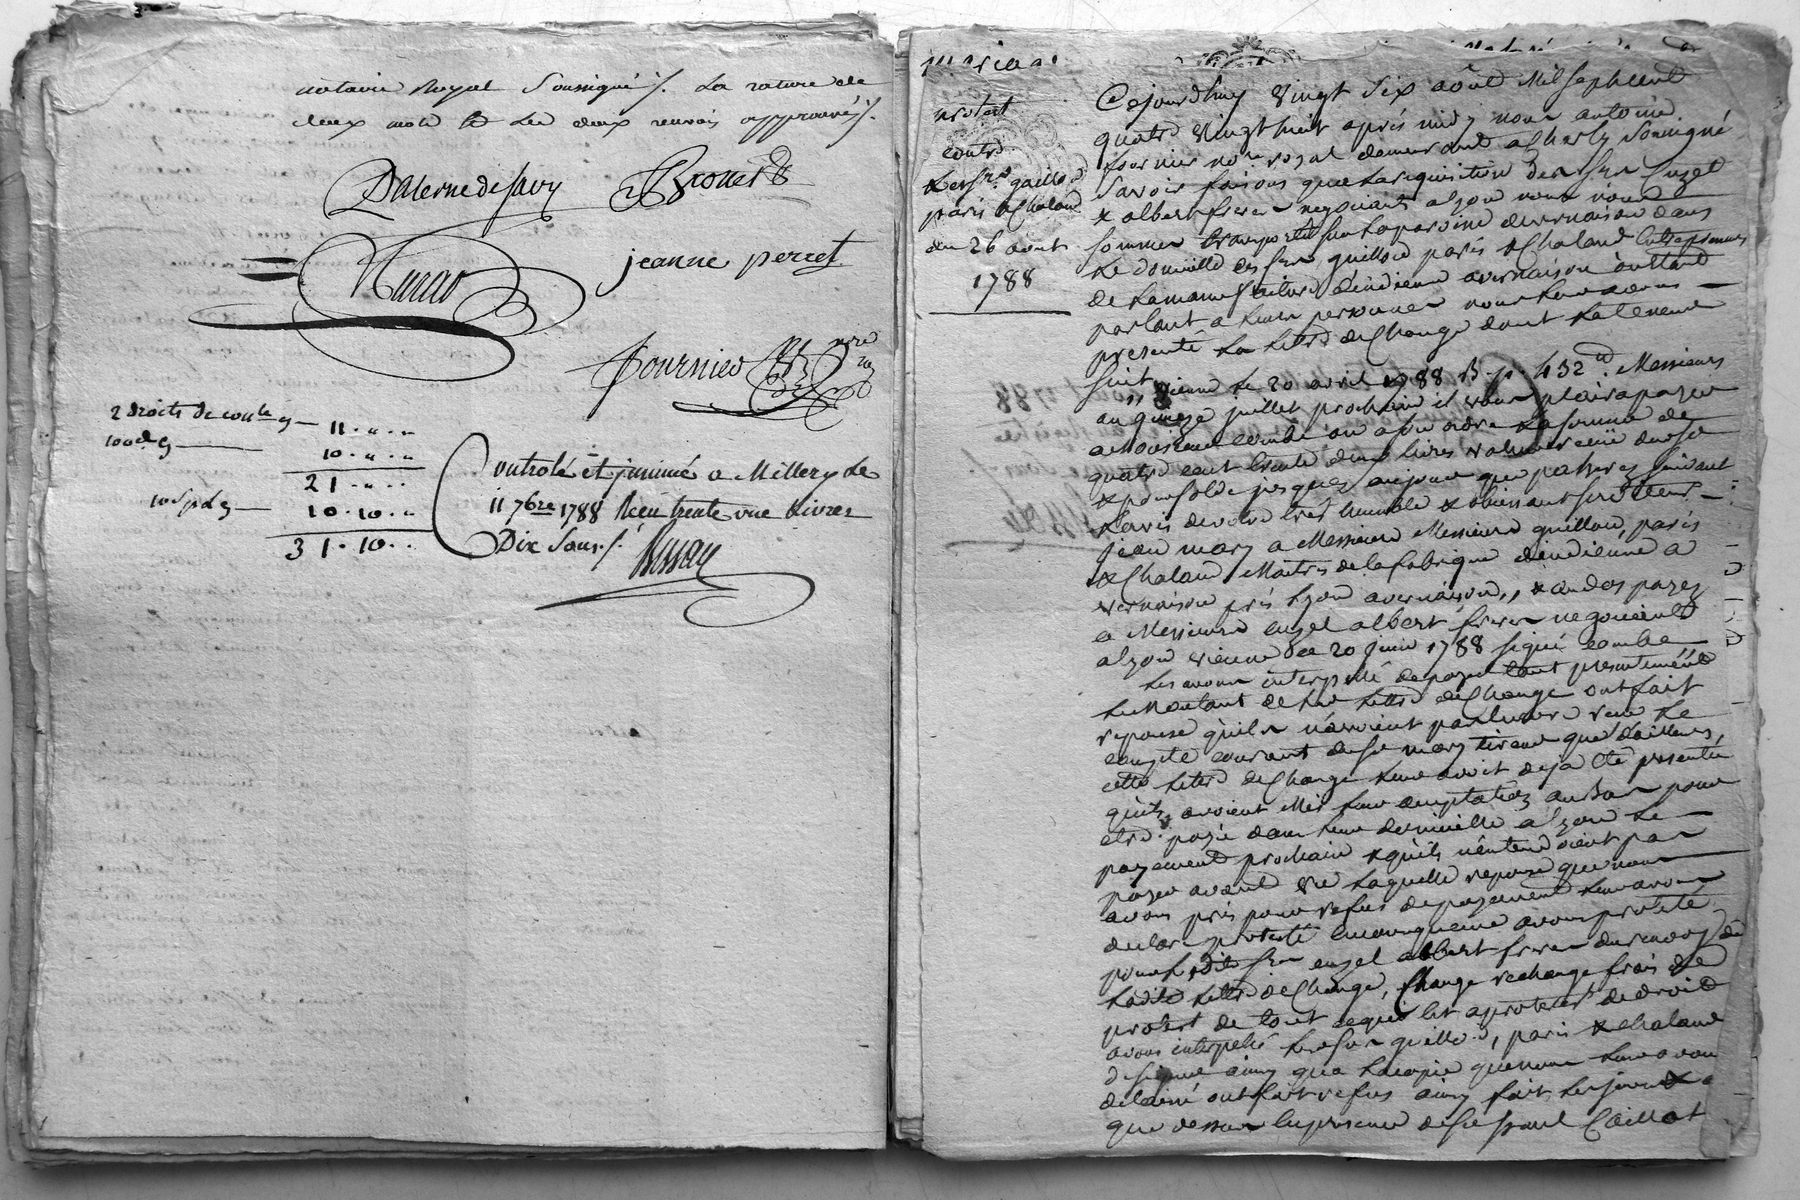 notaire Royal soussigné /. la rature de
deux mots et les deux renvois approuvés /.
Dalerne de Savy
jeanne perret
Fournier
nre
2 droits de conlle
11 · " · "
100e
10 · " · "
21 · " · "
10 s p L
10 · 10 · "
31 · 10 · ·
Controlé et insinué a Millery le
11 7bre 1788 Reçu trente une livres
Dix sous /.
protest
contre
les srs guillou
paris & Chaland
du 26 août
1788
Cejourdhuy vingt six août Mil sept cent
quatre vingt huit aprés midy nous antoine
fournier nore royal demeurant a Charly soussigné
savoir faisons que la requisition des srs euzet
& albert freres negociants a lyon nous nous
sommes transportés sur la paroisse de vernaison dans
le domicille des srs guillou paris & Chaland entrepreneurs
de la manufacture d'indienne a vernaison où étant
parlant a leurs personnes nous leur avons
presenté la lettre de Change dont la teneur
suit
,, vienne le 20 avril 1788 B. p. 432 ll. Messieurs
au quinze juillet prochain il vous plaira payer
a monsieur combe ou a son ordre la somme de
quatre cent trente deux livres valeur reçüe dudit
& pour solde jusques a ce jour que passerez suivant
l'avis de votre très humble & obeissant serviteur
jean mary a Messieurs Messieurs guillou, paris
& Chaland Maitres de la fabrique d'indienne a
vernaison près lyon a vernaison ,, & au dos payez
a Messieurs euzet albert freres negociants
a lyon vienne ce 20 juin 1788 signé combe
les avons interpellé de payer tout presentement
le Montant de lad lettre de Change ont fait
reponse qu'ils n'avoient pas encore reçu le
compte courant de sr mary tireur que d'ailleurs
cette lettre de Change leur avoit deja été presentée
qu'ils avoient Mis leur acceptation au bas pour
etre payée dans leur domicille a lyon le
payement prochain & qu'ils n'entendoient pas
payer avant ce laquelle reponse que nous
avons pris pour refus de payement leur avons
declaré protesté comme avons protesté
pour lesdits srs euzet albert freres du renvoy de
ladite lettre de Change, Change rechange frais de
protest de tout ce qui est a protester de droit
avons interpellé lesd srs guillou, paris & chaland
de signer ainsy que la copie que nous leur avons
delaissé ont fait refus ainsy fait les jours &
que dessus en presence de sr paul Caillot